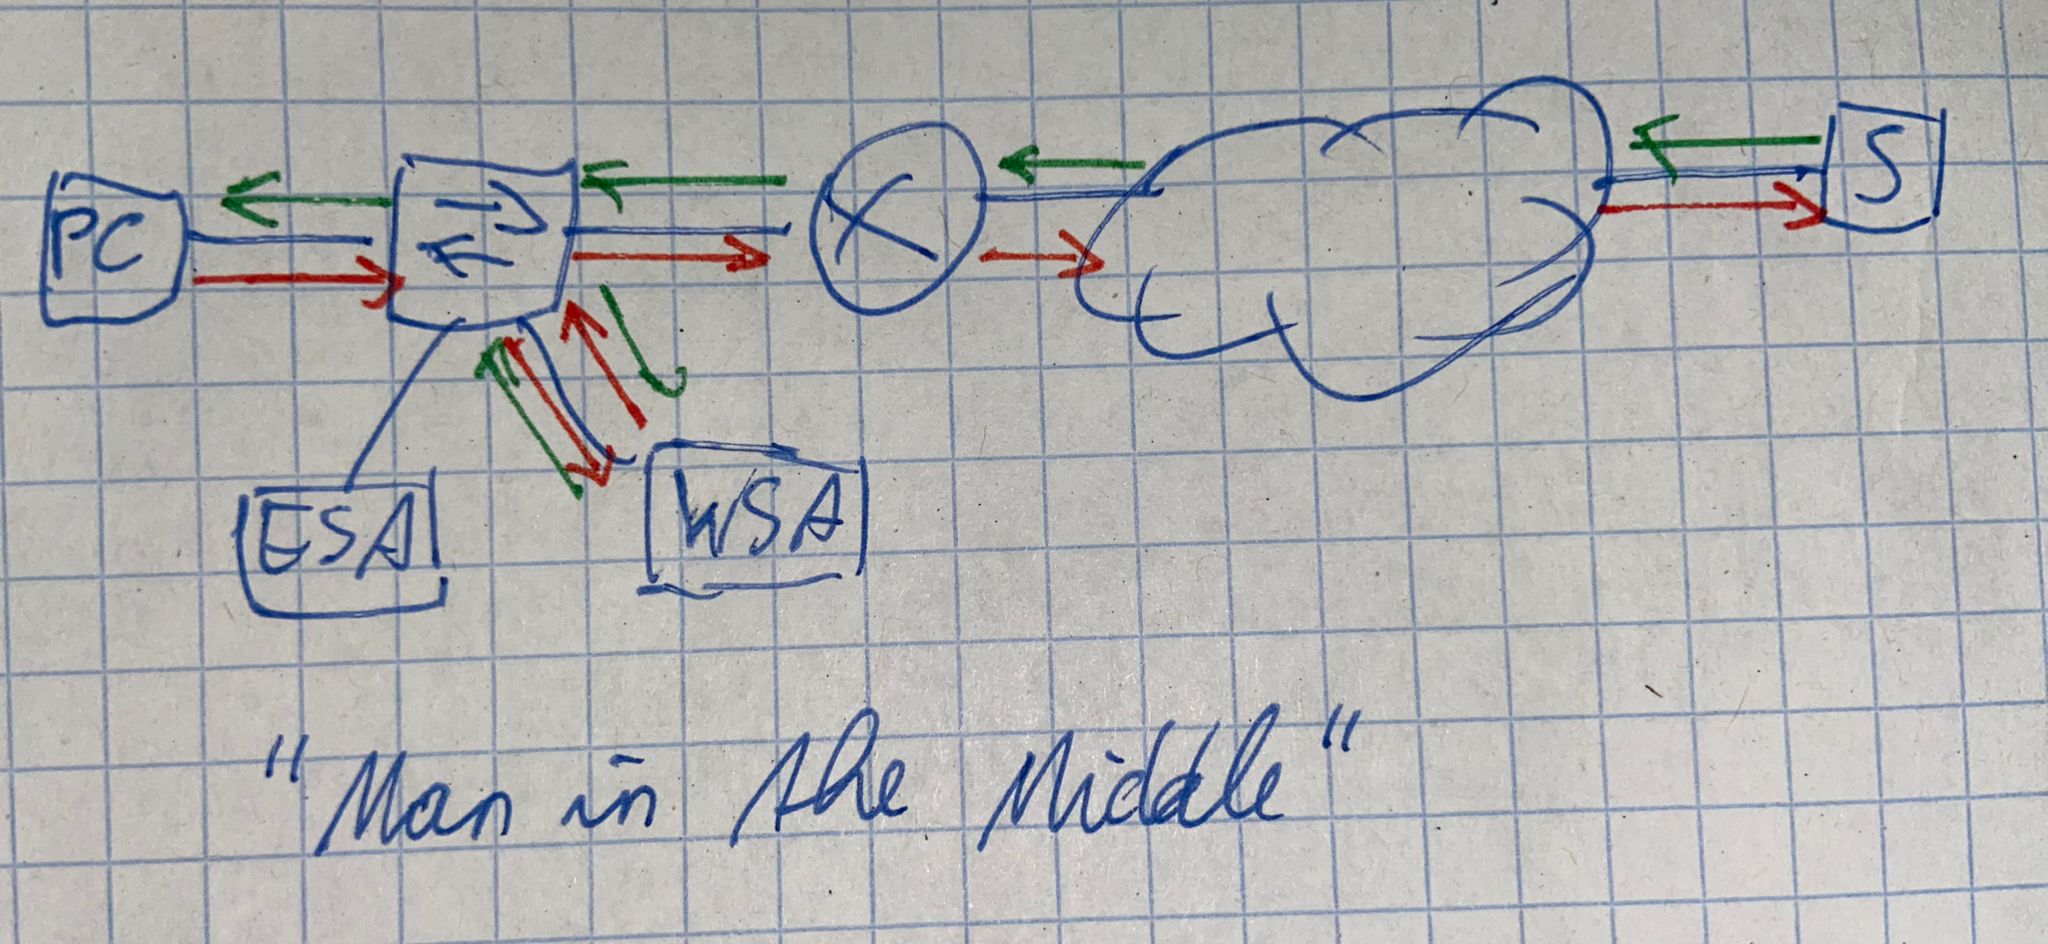 PC
S
ESA
WSA
"Man in the Middle"